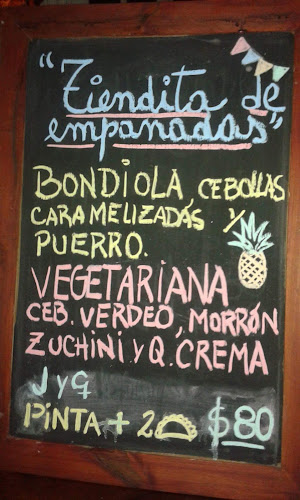 "Tiendita de
empanadas"
BONDIOLA CEBOLLAS
CARAMELIZADAS Y
PUERRO.
VEGETARIANA
CEB. VERDEO, MORRÓN
ZUCHINI Y Q. CREMA
J y Q
PINTA + 2 $80